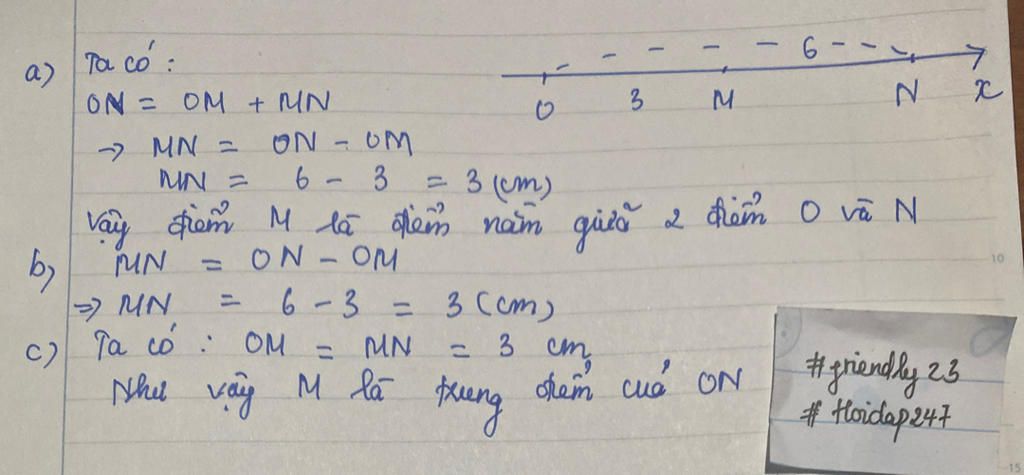 a) Ta có :
6
O 3 M N x
ON = OM + MN
→ MN = ON - OM
MN = 6 - 3 = 3 (cm)
Vậy điểm M là điểm nằm giữa 2 điểm O và N
b) MN = ON - OM
⇒ MN = 6 - 3 = 3 (cm)
c) Ta có : OM = MN = 3 cm
Như vậy M là trung điểm của ON
#friendly23
# Hoidap247
10
15